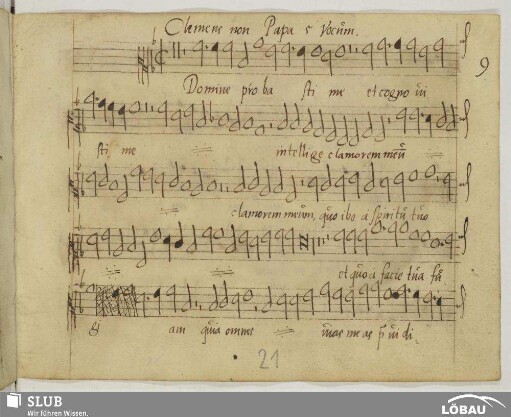 Clemens non Papa 5 Vocum.
9
Domine proba sti me et cogno vi
sti me intellige clamorem meũ
clamorem meum, quo ibo a spiritu tuo
et quo a facie tua fu
g am quia omnes vias meas p vi di
21
SLUB
Wir führen Wissen.
LÖBAU